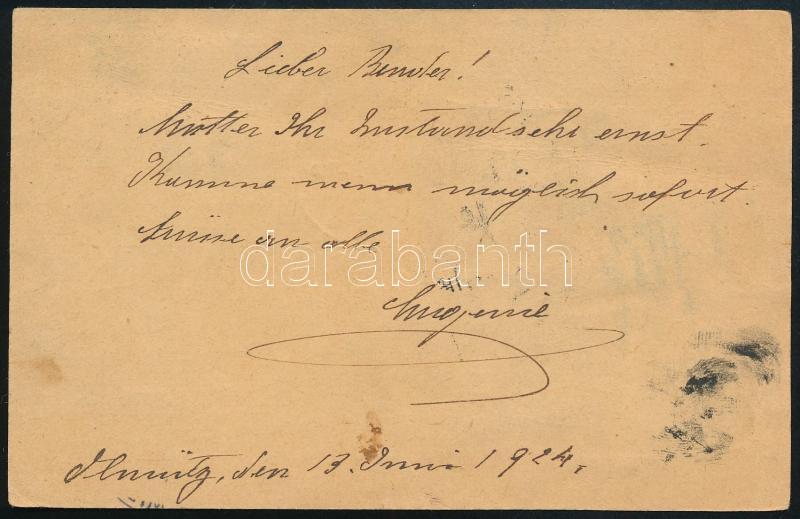 Lieber Bruder!
Mutter Ihr Zustand sehr ernst.
Komme wenn möglich sofort.
Küsse an alle
darabanth
Eugenie
Olmütz, den 13. Juni 1924.